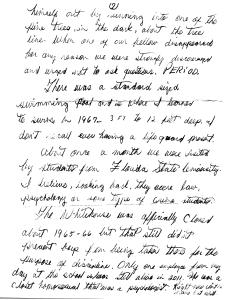 (2)
himself out by running into one of the
pine trees in the dark, about the tree
line. When one of our fellow disappeared
for any reason we were strongly discouraged
and urged not to ask questions. PERIOD.
There was a standard sized
swimming pool and is where I learned
to swim in 1967. 3 to 12 feet deep. I
don't recall ever having a lifeguard present.
About once a month we were visited
by students from Florida State University.
I believe, looking back, they were law,
psychology or some type of students.
The Whitehouse was officially closed
about 1965-66 but that still didn't
prevent boys from being taken there for the
purpose of discipline. Only one employee from my
day at the school was still alive in 2011. He was a
closet homosexual that was a psychologist.